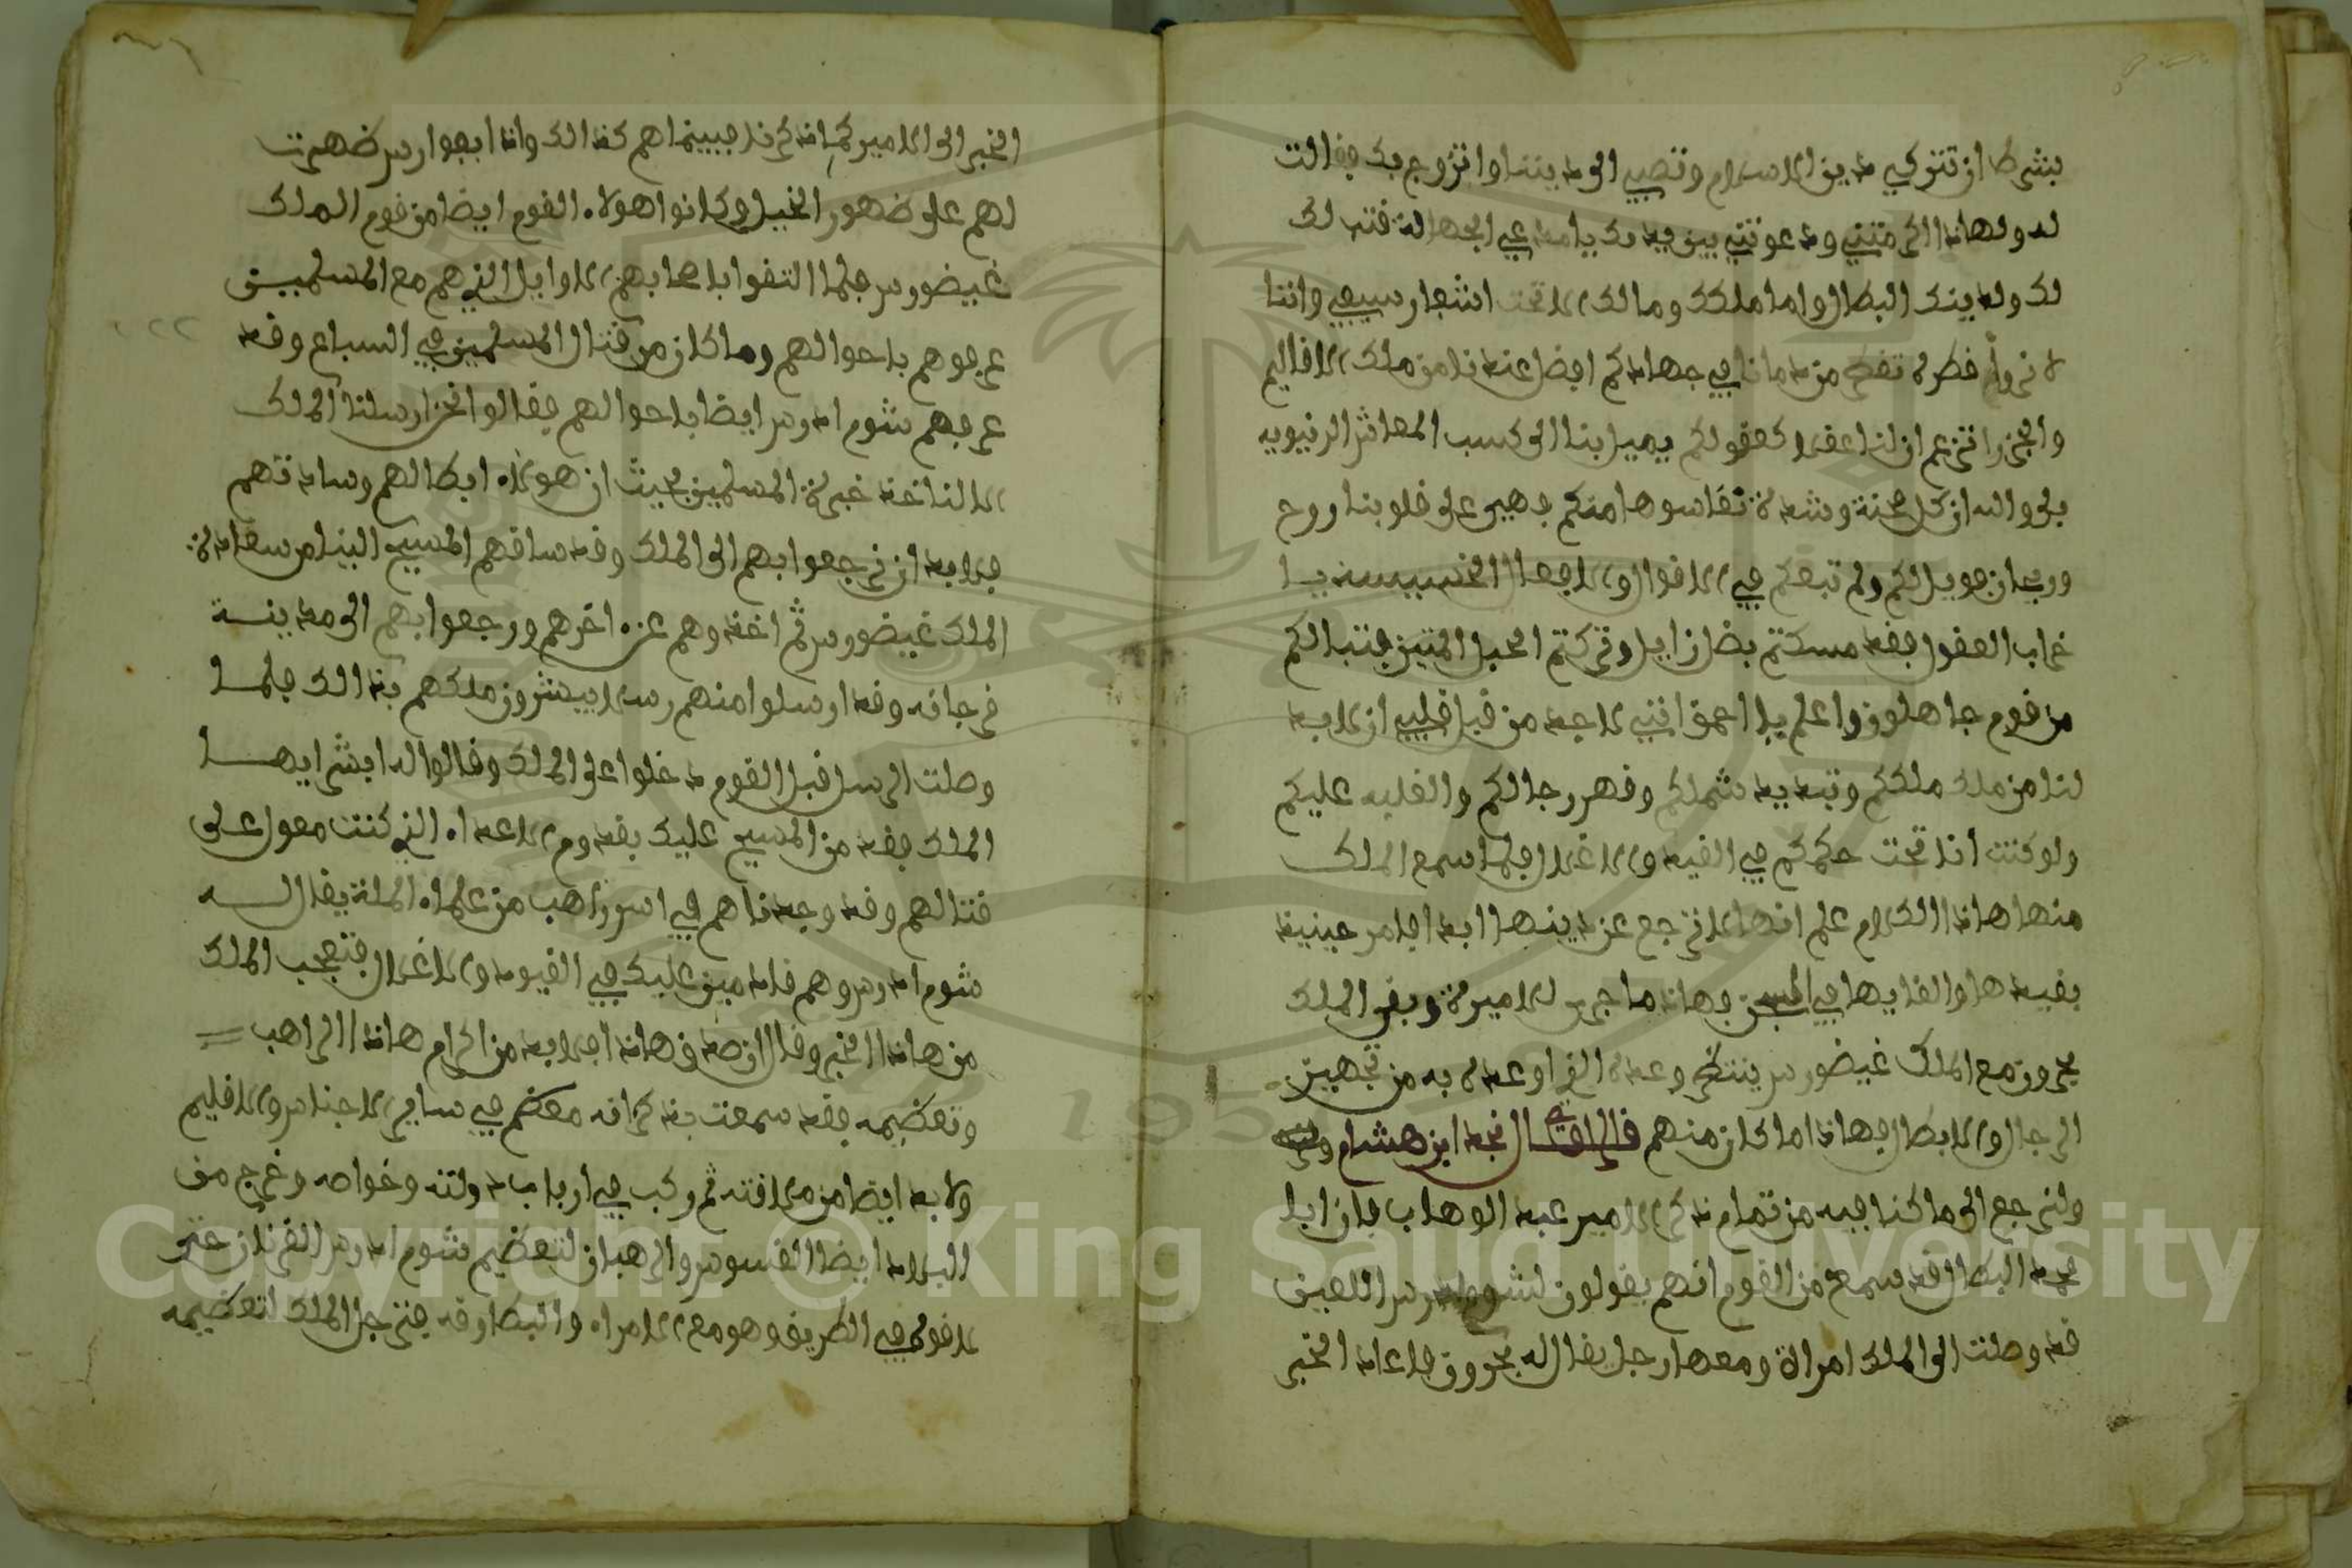 بشرط ان تتركي دين الاسلام وتصبي الى ديننا وانزوج بك فقالت
له ولهاذا اكرمتني ودعوتني بين يديك يا مدعي الجهالة فتب لك
لك ولدينك البطال واما ملكك ومالك الا تحت اشفار سيفي واننا
لا نروا قطرة تقطر من دمانا في جهادكم افضل عندنا من ملك الاقاليم
وانحن اتزعم ان لنا عقلا كعقولكم يميل بنا الى كسب المعاشر الدنيويه
بلى والله ان كل محنة وشدة نقاسوها منكم فهي على قلوبنا روح
وريحان فويل لكم ولم تبعكم في الاقوال والافعال الخسيسة يا
خراب العقول فقد مسكتم بضلزايل وتركتم الحبل المتين فتبا لكم
من قوم جاهلون واعلم يا احمق انني لاجد من قبل قلبي ان لابد
لنا من ملك ملككم وتبديد شملكم وقهر رجالكم والغلبه عليكم
ولو كنت انا تحت حكمكم في القيد والاغلال فلما سمع الملك
منها هاذا الكلام علم انها لا ترجع عن دينها ابدا فامر حينيذ
بقيدها والقايها في السجن فهاذا ما جرى للاميرة وبقى الملك
بحرون مع الملك غيضورس ينتظر وعده الذي اوعده به من تجهيز
الرجال والابطال فهاذا ما كان منهم قال الراوي نجد ابن هشام
ولنرجع الى ما كنا فيه من تمام ذكر الامير عبد الوهاب فان ابا
محمد البطال قد سمع من القوم انهم يقولون لشوم ادرس اللعين
قد وصلت الى الملك امراة ومعها رجل يقال له بحرون فاعاد الخبر
الخبر الى الامير كما ذكرنا فبينما هم كذالك واذا ابفوارس ضهرت
لهم على ضهور الخيل وكانوا هولاء القوم ايضا من قوم الملك
غيضورس فلما التقوا باصحابهم الاوايل الذي هم مع المسلمين
عرفوهم باحوالهم وما كان من قتال المسلمين في السباع وقد
عرفهم شوم ادرس ايضا باحوالهم فقالوا نحن ارسلنا الملك
الا لناخذ خبرة المسلمين بحيث ان هولاء ابطالهم وساداتهم
فلابد ان نرجعوا بهم الى الملك وقد ساقهم المسيح الينا من سعادة
الملك غيضورس ثم اخذوهم عن اخرهم ورجعوا بهم الى مدينة
فرجانه وقد ارسلوا منهم رسلا يبشرون ملكهم بذالك فلما
وصلت الرسل قبل القوم دخلوا على الملك وقالوا له ابشر ايها
الملك فقد من المسيح عليك بقدوم الاعداء الذي كنت معول على
قتالهم وقد وجدناهم في اسر راهب من علماء الملة يقال له
شوم ادرس وهم قادمين عليك في القيود والاغلال فتعجب الملك
من هاذا الخبر وقال ان صدق هاذا فلابد من اكرام هاذا الراهب
وتعظيمه فقد سمعت بذكره انه معظم في ساير الاجناس والاقليم
ولابد ايضا من ملاقته ثم ركب في ارباب دولته وخواصه وخرج من
البلاد ايضا القسوس والرهبان لتعظيم شوم ادرس القرنان حتى
لاقوه في الطريق وهو مع الامراء والبطارقه فترجل الملك لتعظيمه